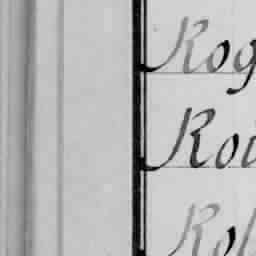 Rog
Roi
Rob